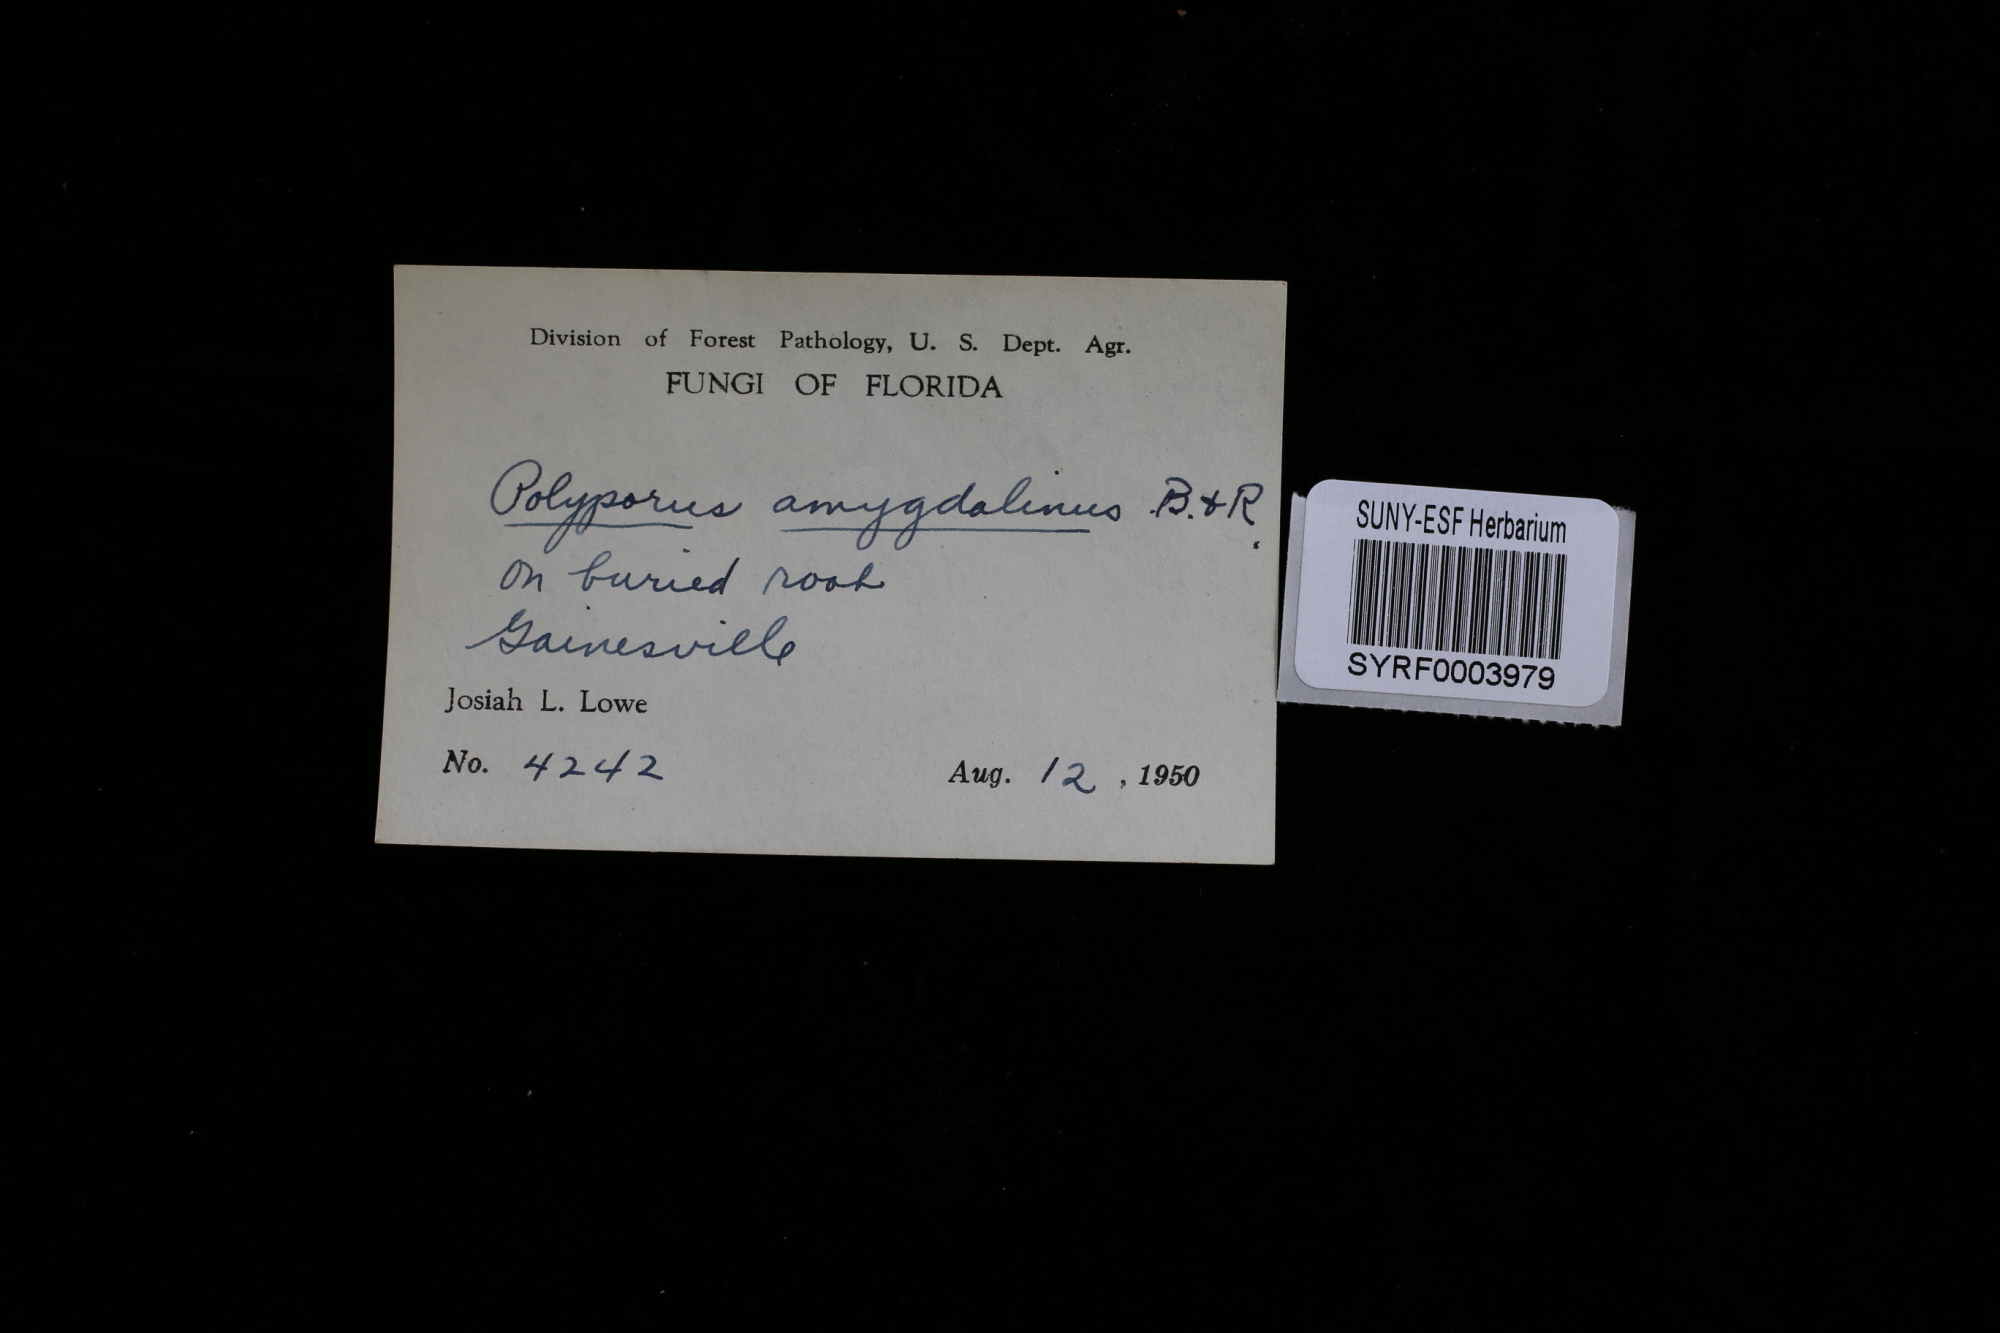 Division of Forest Pathology, U. S. Dept. Agr.
FUNGI OF FLORIDA
Polyporus amygdalinus B. & R.
on buried root
Gainesville
Josiah L. Lowe
No. 4242
Aug. 12, 1950
SUNY-ESF Herbarium
SYRF0003979